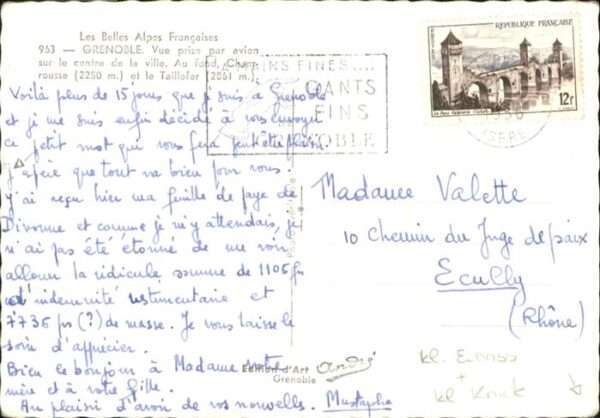 Les Belles Alpes Françaises
953 — GRENOBLE. Vue prise par avion
sur le centre de la ville. Au fond, Cham-
rousse (2250 m.) et le Taillefer (2861 m.)
Voilà plus de 15 jours que je suis à Grenoble
et je me suis enfin décidé à vous envoyer
ce petit mot qui vous fera peut être plaisir.
J'espère que tout va bien pour vous.
J'ai reçu hier ma feuille de paye de
Divonne et comme je m'y attendais, je
n'ai pas été étonné de me voir
allouer la ridicule somme de 1106 frs
d'indemnité vestimentaire et
7736 frs (?) de masse. Je vous laisse le
soin d'apprécier.
Bien le bonjour à Madame votre
mère et à votre fille.
Au plaisir d'avoir de vos nouvelles. Mustapha
MAINS FINES....
GANTS
FINS
GRENOBLE
REPUBLIQUE FRANÇAISE
12F
ISERE
Madame Valette
10 Chemin du Juge de paix
Ecully
(Rhône)
Edition d'Art André
Grenoble
kl.
+
kl.